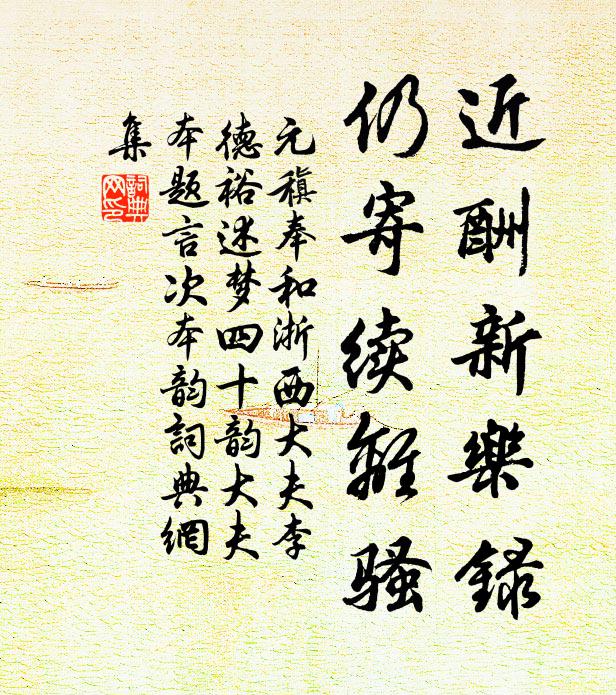 近酬新樂録
仍寄續離騷
元稹奉和浙西大夫李
德裕述梦四十韵大夫
本题言次本韵詞典網
集
詞典
网印